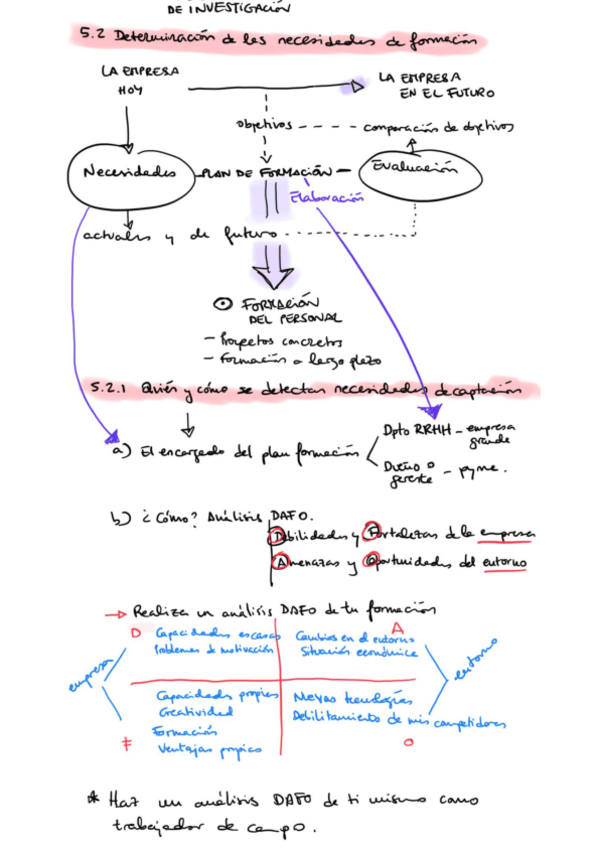 DE INVESTIGACIÓN
5.2 Determinación de les necesidades de formación
LA EMPRESA
HOY
LA EMPRESA
EN EL FUTURO
objetivos
comparación de objetivos
Necesidades
PLAN DE FORMACIÓN
Evaluación
Elaboración
actuales y de futuro
FORMACIÓN
DEL PERSONAL
- Proyectos concretos
- Formación a largo plazo
5.2.1 Quién y cómo se detectan necesidades de captación
a) El encargado del plan formación
Dpto RRHH - empresa
grande
Dueño o
gerente - pyme.
b) ¿Cómo? Análisis DAFO.
Debilidades y Fortalezas de la empresa
Amenazas y Oportunidades del entorno
→ Realiza un análisis DAFO de tu formación
D
Capacidades escasas
Problemas de motivación
A
Cambios en el entorno
Situación económica
empresa
entorno
Capacidades propias
Creatividad
Formación
Ventajas propias
F
Nuevas tecnologías
Debilitamiento de mis competidores
O
* Haz un análisis DAFO de ti mismo como
trabajador de campo.